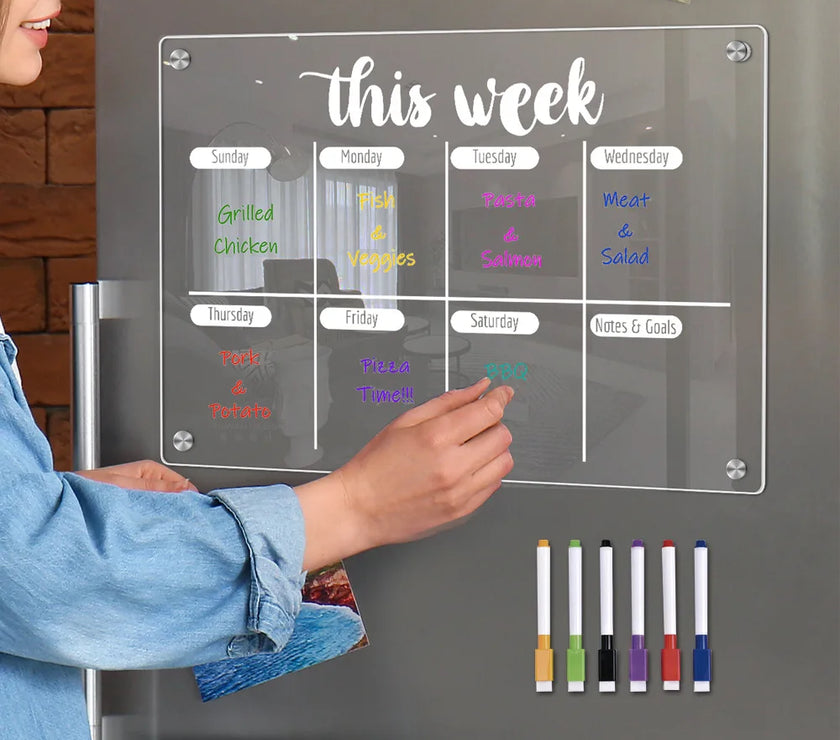 this week
Sunday
Monday
Tuesday
Wednesday
Grilled
Chicken
Fish
&
Veggies
Pasta
&
Salmon
Meat
&
Salad
Thursday
Friday
Saturday
Notes & Goals
Pork
&
Potato
Pizza
Time!!!
BBQ